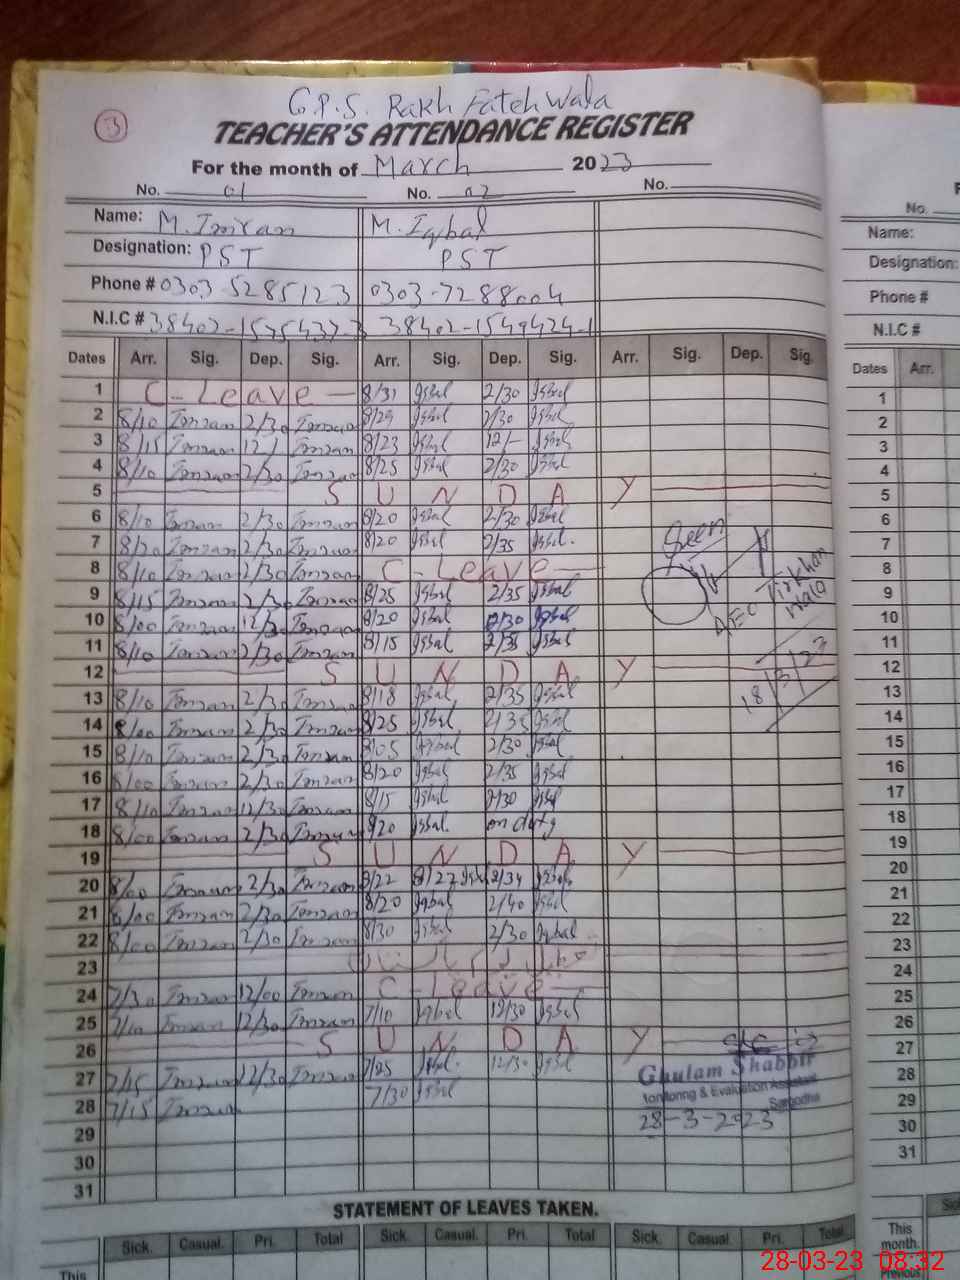 3
G.P.S. Rakh Fatehwala
TEACHER'S ATTENDANCE REGISTER
For the month of March 2023
No. 01 No. 02 No.
Name: M. Imran M. Iqbal
Designation: PST PST
Phone # 0303-5285123 0303-7288004
N.I.C # 38402-1575437-3 38402-1549424-1
Dates Arr. Sig. Dep. Sig. Arr. Sig. Dep. Sig. Arr. Sig. Dep. Sig.
1 C-Leave 8/31 Iqbal 2/30 Iqbal
2 8/10 Imran 2/30 Imran 8/29 Iqbal 2/30 Iqbal
3 8/15 Imran 12/ Imran 8/23 Iqbal 12/- Iqbal
4 8/10 Imran 2/30 Imran 8/25 Iqbal 2/30 Iqbal
5 S U N D A Y
6 8/10 Imran 2/30 Imran 8/20 Iqbal 2/30 Iqbal
7 8/20 Imran 2/30 Imran 8/20 Iqbal 2/35 Iqbal
8 8/10 Imran 2/30 Imran C-Leave
9 8/15 Imran 2/30 Imran 8/25 Iqbal 2/35 Iqbal
10 8/00 Imran 12/30 Imran 8/20 Iqbal 12/30 Iqbal
11 8/10 Imran 2/30 Imran 8/15 Iqbal 2/35 Iqbal
12 S U N D A Y
13 8/10 Imran 2/30 Imran 8/18 Iqbal 2/35 Iqbal
14 8/00 Imran 2/30 Imran 8/25 Iqbal 2/35 Iqbal
15 8/10 Imran 2/30 Imran 8/05 Iqbal 2/30 Iqbal
16 8/00 Imran 2/30 Imran 8/20 Iqbal 2/35 Iqbal
17 8/10 Imran 12/30 Imran 8/15 Iqbal 2/30 Iqbal
18 8/00 Imran 2/30 Imran 8/20 Iqbal on duty
19 S U N D A Y
20 8/00 Imran 2/30 Imran 8/22 8/22 Iqbal 2/34 Iqbal
21 8/00 Imran 2/30 Imran 8/20 Iqbal 2/40 Iqbal
22 8/00 Imran 2/30 Imran 8/30 Iqbal 2/30 Iqbal
23
24 7/30 Imran 12/00 Imran C-Leave
25 7/10 Imran 12/30 Imran 7/10 Iqbal 12/30 Iqbal
26 S U N D A Y
27 7/15 Imran 12/30 Imran 7/25 Iqbal 12/30 Iqbal
28 7/15 Imran 7/30 Iqbal
29
30
31
Seen
AEO Tirkhan
Wala
18/3/23
Ghulam Shabbir
Monitoring & Evaluation Assistant
Sargodha
28-3-2023
STATEMENT OF LEAVES TAKEN.
Sick. Casual. Pri. Total Sick. Casual. Pri. Total Sick. Casual. Pri. Total
This
No.
Name:
Designation:
Phone #
N.I.C #
Dates Arr.
1
2
3
4
5
6
7
8
9
10
11
12
13
14
15
16
17
18
19
20
21
22
23
24
25
26
27
28
29
30
31
This
month.
Previous
28-03-23 08:32